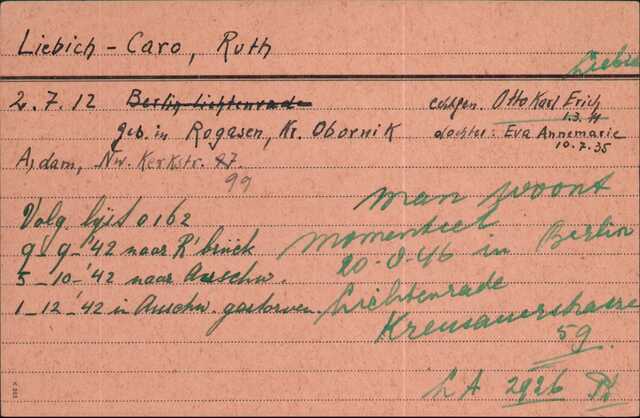 Liebich - Caro, Ruth
Liebic
2.7.12 Berlin Lichtenrade echtgen. Otto Karl Erich
1.3.11
geb. in Rogasen, Kr. Obornik dochter: Eva Annemarie
10.7.35
A'dam, Nw. Kerkstr. 87.
99
man woont
momenteel
20-8-46 in Berlin
Lichtenrade
Kreusauerstrasse
59.
Volg. lijst 0162
9-9-'42 naar R'brück
5-10-'42 naar Auschw.
1-12-'42 in Auschw. gestorven.
LA 2926
K 353